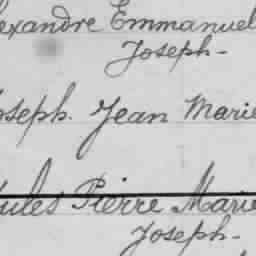 exandre Emmanuel
Joseph-
oseph. Jean Marie
ules Pierre Marie
Joseph-